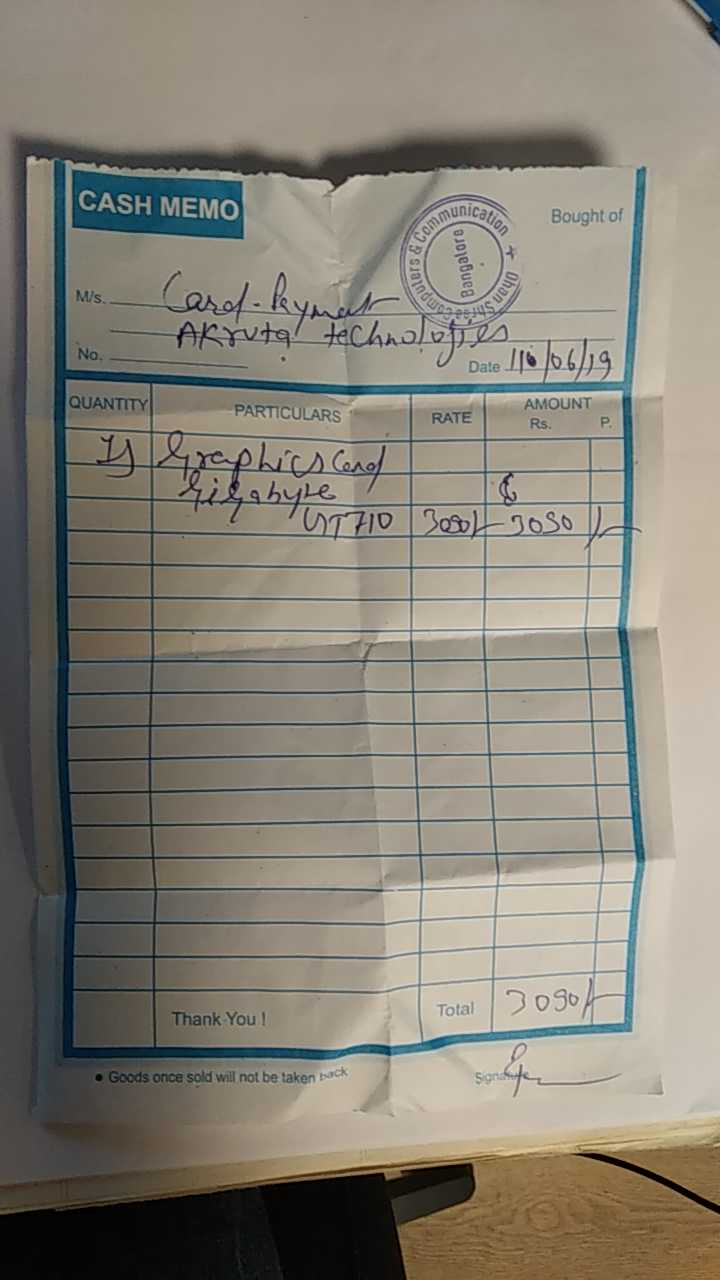 CASH MEMO
Dhan Shree Computers & Communication
Bangalore
Bought of
M/s. Card-Payment
Akruta technologies
No.
Date 06/19
QUANTITY PARTICULARS RATE AMOUNT
Rs. P.
Graphics Card
Gigabyte
GT710 3090/- 3090/-
Thank You ! Total 3090/-
• Goods once sold will not be taken back Signature